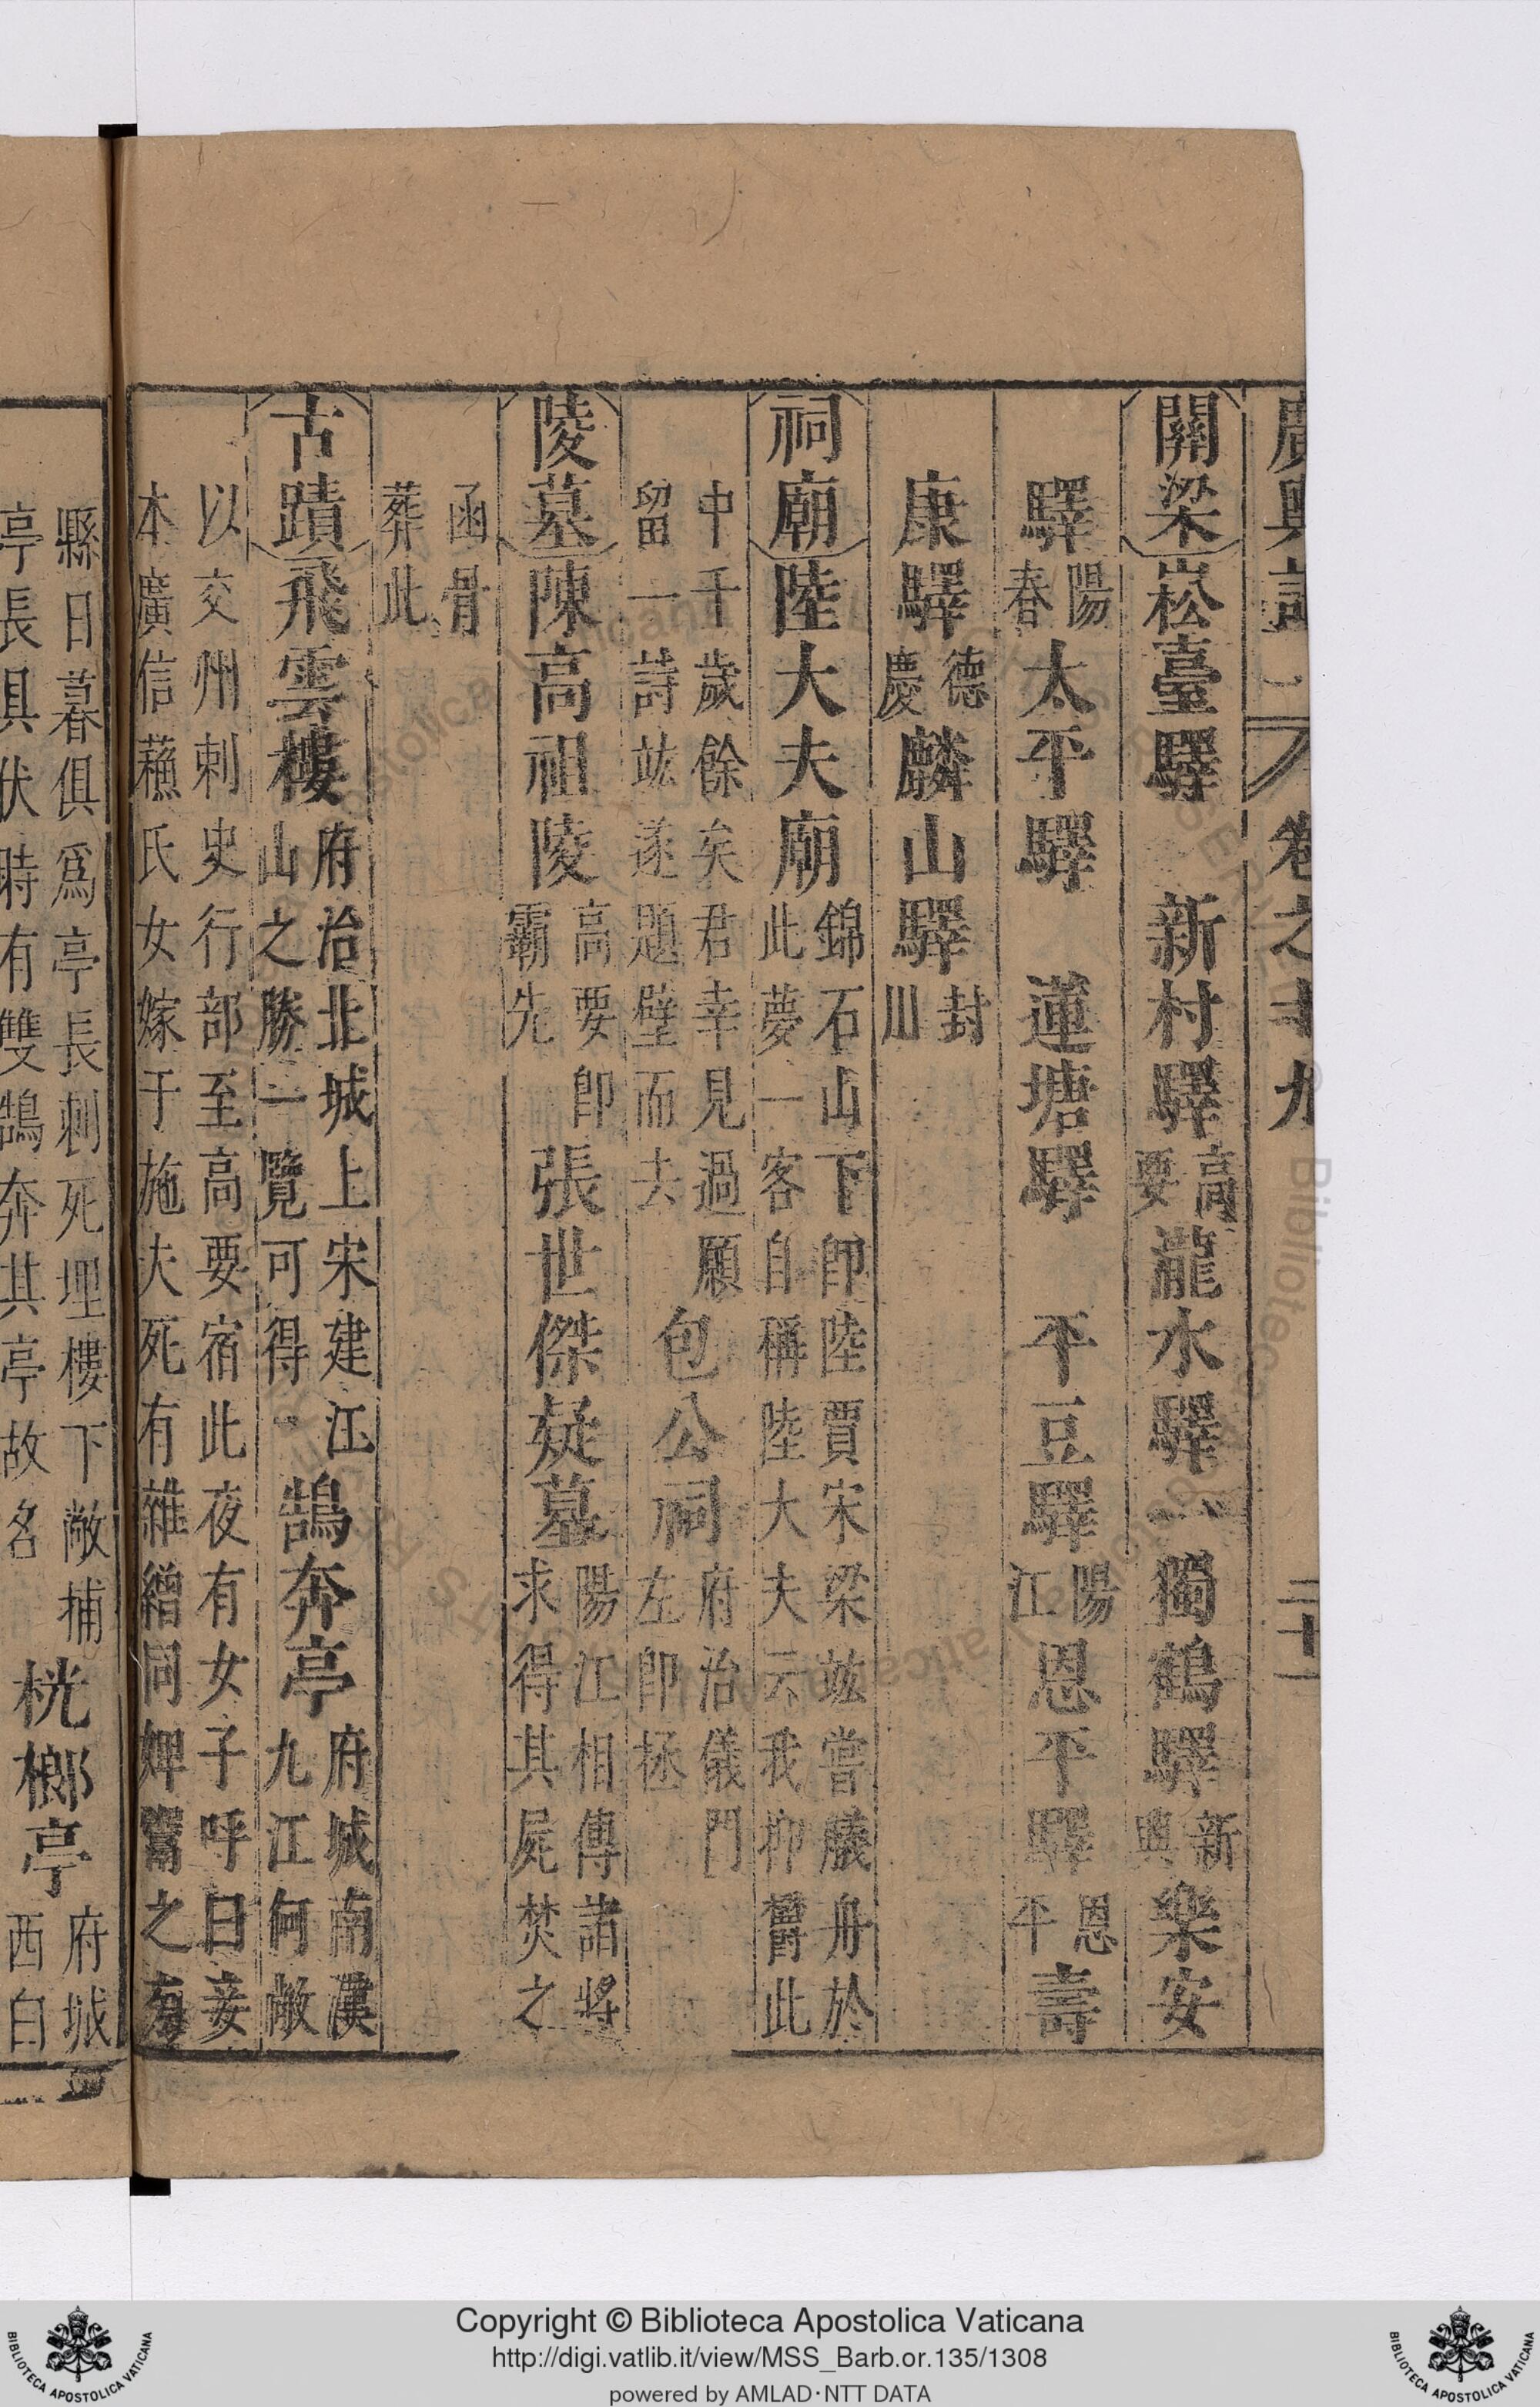 廣輿記 卷之十九 二十一
關梁 崧臺驛 新村驛 高要 瀧水驛 獨鶴驛 新興 樂安
驛 陽春 太平驛 蓮塘驛 平豆驛 陽江 恩平驛 恩平 壽
康驛 德慶 麟山驛 封川
祠廟 陸大夫廟 錦石山下即陸賈宋梁竑嘗艤舟於
此夢一客自稱陸大夫云我抑鬱此
中千歲餘矣君幸見過願
留一詩竑遂題壁而去 包公祠 府治儀門
左即拯
陵墓 陳高祖陵 高要即
霸先 張世傑疑墓 陽江相傳諸將
求得其屍焚之
函骨
葬此
古蹟 飛雲樓 府治北城上宋建江
山之勝一覽可得 鵠奔亭 府城南漢
九江何敞
以交州刺史行部至高要宿此夜有女子呼曰妾
本廣信蘓氏女嫁于施夫死有雜繒同婢鬻之為
縣日暮俱爲亭長刺死埋樓下敞捕
亭長具伏時有雙鵠奔其亭故名 桄榔亭 府城
西自
Copyright © Biblioteca Apostolica Vaticana
http://digi.vatlib.it/view/MSS_Barb.or.135/1308
powered by AMLAD·NTT DATA
BIBLIOTECA APOSTOLICA VATICANA
BIBLIOTECA APOSTOLICA VATICANA